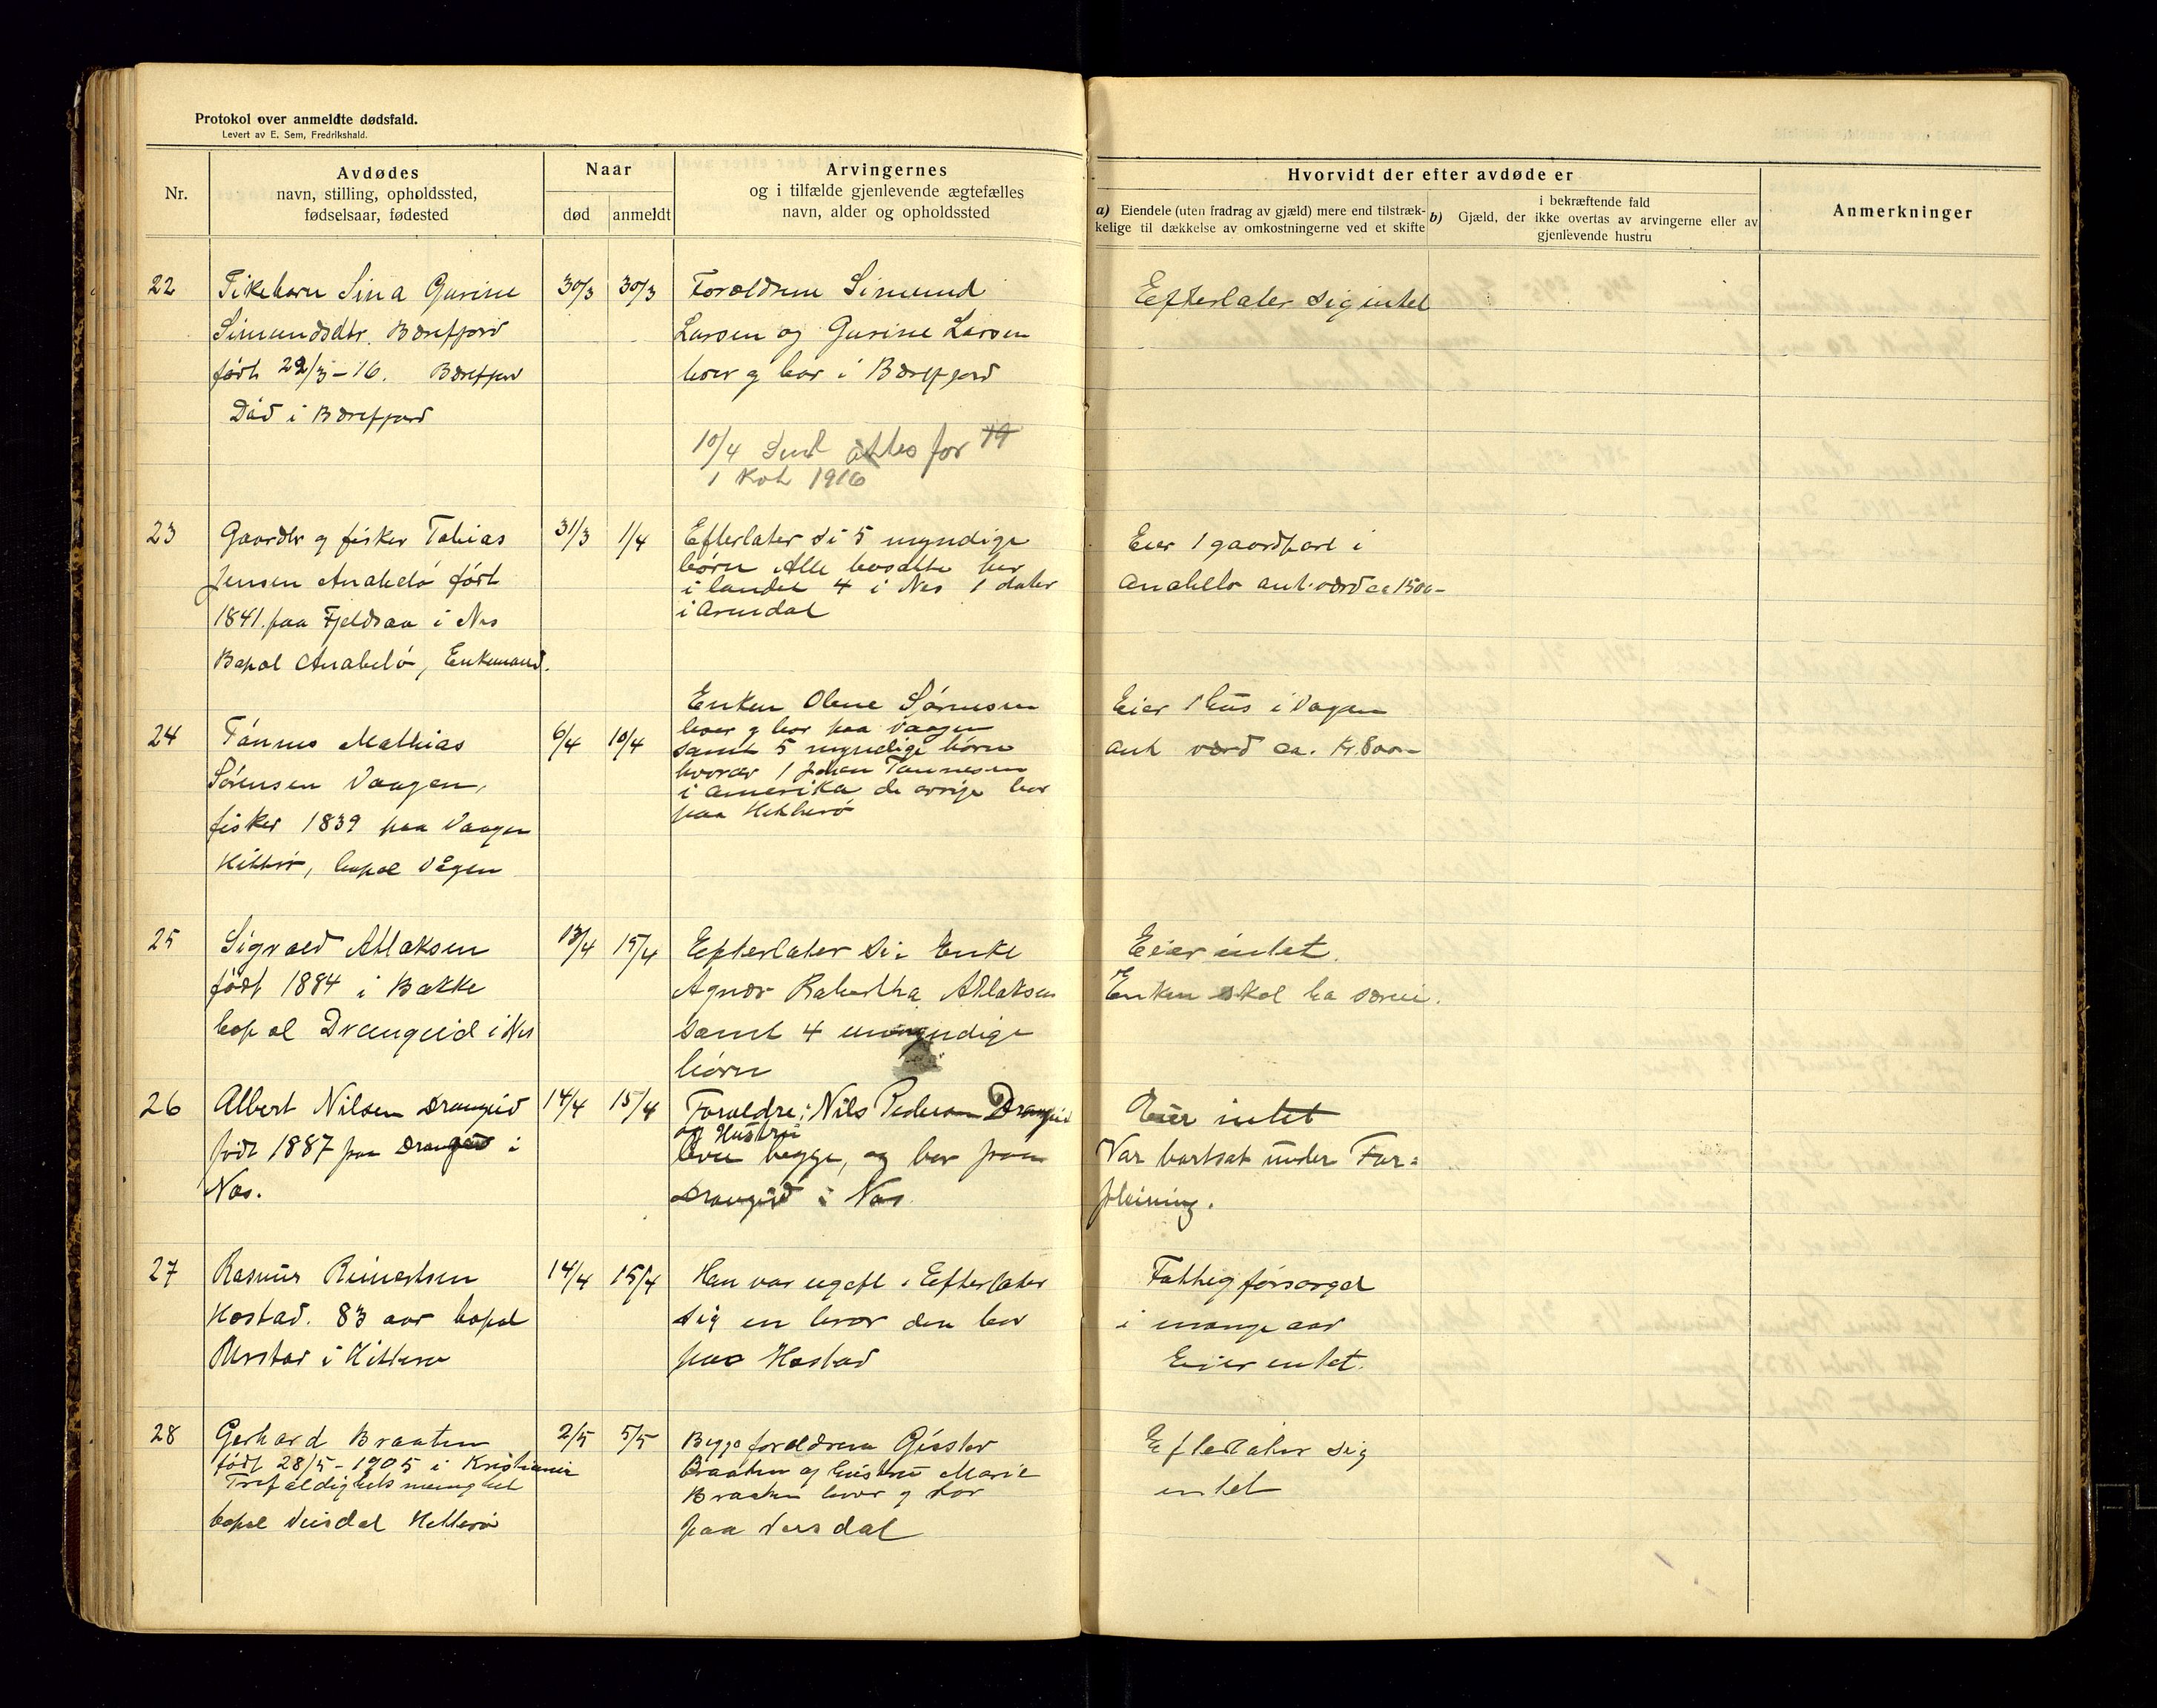 Protokol over anmeldte dødsfald.
Levert av E. Sem, Fredrikshald.
Nr.
Avdødes
navn, stilling, opholdssted,
fødselsaar, fødested
Naar
død
anmeldt
Arvingernes
og i tilfælde gjenlevende ægtefælles
navn, alder og opholdssted
Hvorvidt der efter avdøde er
a) Eiendele (uten fradrag av gjæld) mere end tilstræk-
kelige til dækkelse av omkostningerne ved et skifte
i bekræftende fald
b) Gjæld, der ikke overtas av arvingerne eller av
gjenlevende hustru
Anmerkninger
22
Pikebarn Sina Gurine
Simundsdtr. Bærefjord
født 22/3-16. Bærefjord
Død i Bærefjord
30/3
30/3
Foreldrene Simund
Larsen og Gurine Larsen
lever g bor i Bærefjord
10/4 Send attes for
1 Kvt 1916
Efterlater sig intet
23
Gaardbr g fisker Tobias
Jensen Anabelø født
1841 paa Fjeldsaa i Nes
Bopæl Anabelø, Enkemand.
31/3
1/4
Efterlater si 5 myndige
børn Alle bosatte her
i landet 4 i Nes 1 dater
i Arendal
Eier 1 gaardpart i
Anabelø ant. værd ca 1500-
24
Tønnes Mathias
Sørensen Vaagen,
fisker 1839 paa Vaagen
Hitterø, bopæl Vågen
6/4
10/4
Enken Olene Sørensen
lever g bor paa Vaagen
samt 5 myndige børn
hvorav 1 Johan Tønnesen
i Amerika de øvrige bor
paa Hitterø
Eier 1 hus i Vagen
ant værd ca. Kr. 800-
25
Sigvald Atlaksen
født 1884 i Bakke
bopæl Drangeid i Nes
13/4
15/4
Efterlater si: Enke
Agnes Atlaksen
samt 4 umyndige
børn
Eier intet.
Enken skal ha
26
Albert Nilsen Drangeid
født 1887 paa Drangeid i
Nes.
14/4
15/4
Foreldre: Nils Pedersen Drangeid
og Hustru
lever begge, og bor paa
Drangeid i Nes
Eier intet
Var bortsat under For=
pleining.
27
Rasmus Reinertsen
Hastad. 83 aar bopæl
i Hitterø
14/4
15/4
Han var ugift. Efterlater
sig en bror den bor
paa Hastad
Fattigforsørget
i mange aar
Eier intet.
28
Gerhard Braaten
født 28/5-1905 i Kristiania
Trefoldighets menighet
bopæl Veisdal Hitterø
2/5
5/5
Begge foreldrene
Braaten og hustru Marie
Braaten lever g bor
paa Veisdal
Efterlater sig
intet